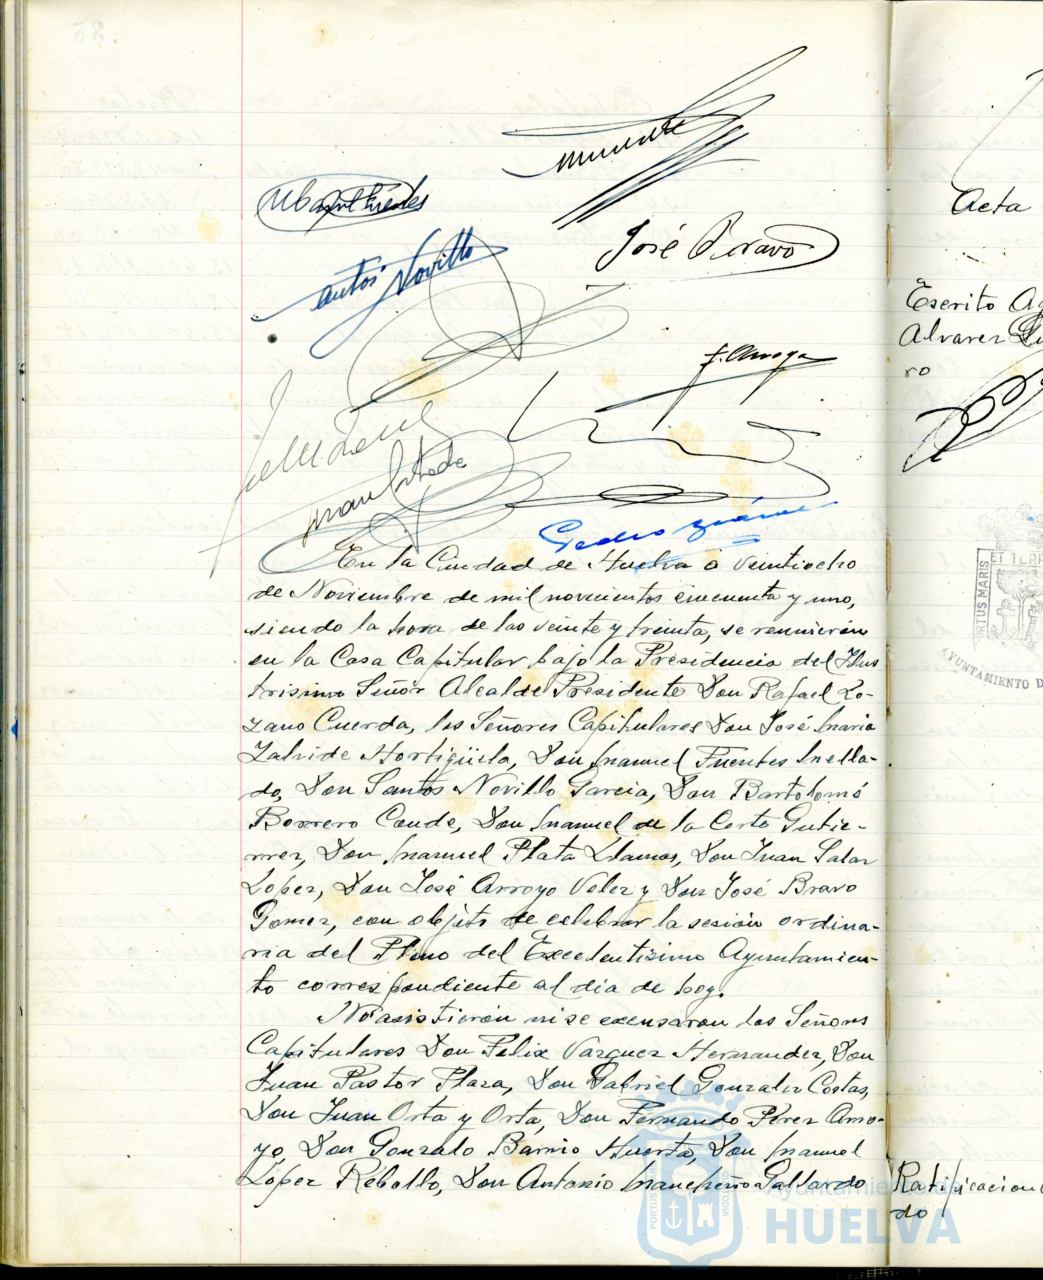 José Bravo
Santos Novillo
J. Arroyo
En la Ciudad de Huelva á veintiocho
de Noviembre de mil novecientos cincuenta y uno,
siendo la hora de las veinte y treinta, se reunieron
en la Casa Capitular bajo la Presidencia del Ilus
trisimo Señor Alcalde Presidente Don Rafael Lo-
zano Cuerda, los Señores Capitulares Don José Maria
Zalvide Hortigüela, Don Manuel Fuentes Mella-
do, Don Santos Novillo Garcia, Don Bartolomé
Borrero Conde, Don Manuel de la Corte Gutie-
rrez, Don Manuel Plata Llamas, Don Juan Salar
López, Don José Arroyo Velez y Don José Bravo
Gomez, con objeto de celebrar la sesión ordina-
ria del Pleno del Excelentisimo Ayuntamien-
to correspondiente al dia de hoy.
No asistieron ni se excusaron los Señores
Capitulares Don Felix Vazquez Hernandez, Don
Juan Pastor Plaza, Don Gabriel Gonzalez Costas,
Don Juan Orta y Orta, Don Fernando Perez Arro-
yo, Don Gonzalo Barrio Huerta, Don Manuel
López Rebollo, Don Antonio Mancheño Gallardo
Acta
Escrito
Alvarez
ro
PORTUS MARIS
ET TERR
AYUNTAMIENTO D
Ratificacion
do
Ayuntamiento de
HUELVA